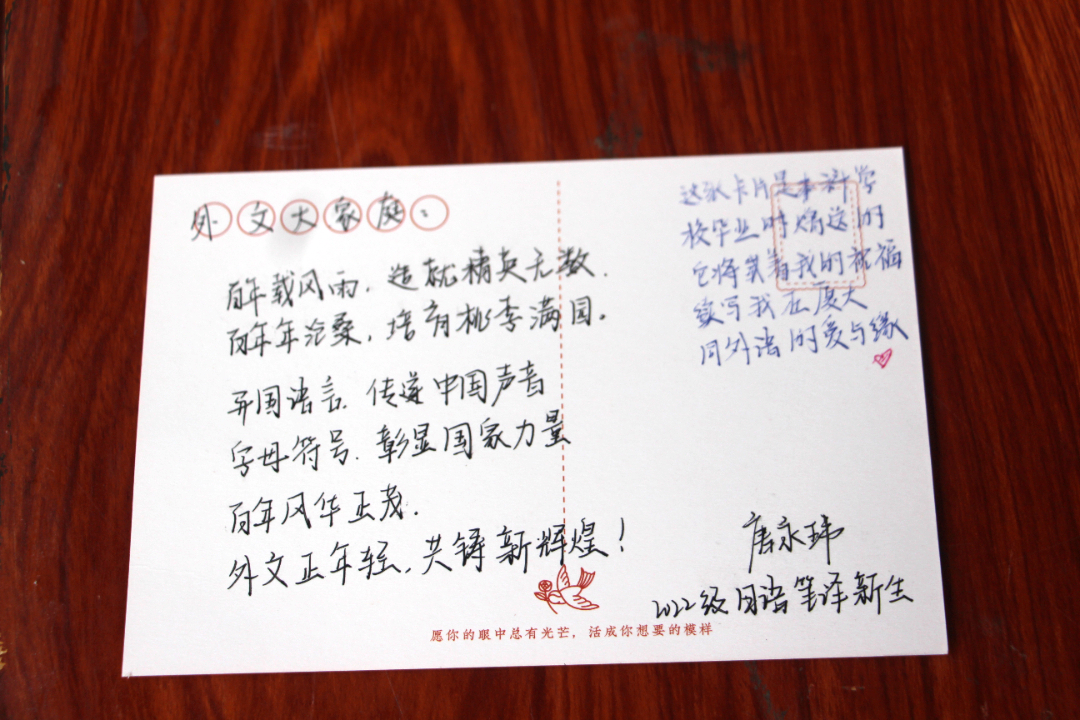 外文大家庭：
百年载风雨，造就精英无数.
百年年沧桑，培育桃李满园。
异国语言.传递中国声音
字母符号.彰显国家力量
百年风华正茂.
外文正年轻，共铸新辉煌！
这张卡片是本科学
校毕业时赠送的
它将载着我的祝福
续写我在厦大
同外语的爱与缘
唐永玮
2022级日语笔译新生
愿你的眼中总有光芒，活成你想要的模样